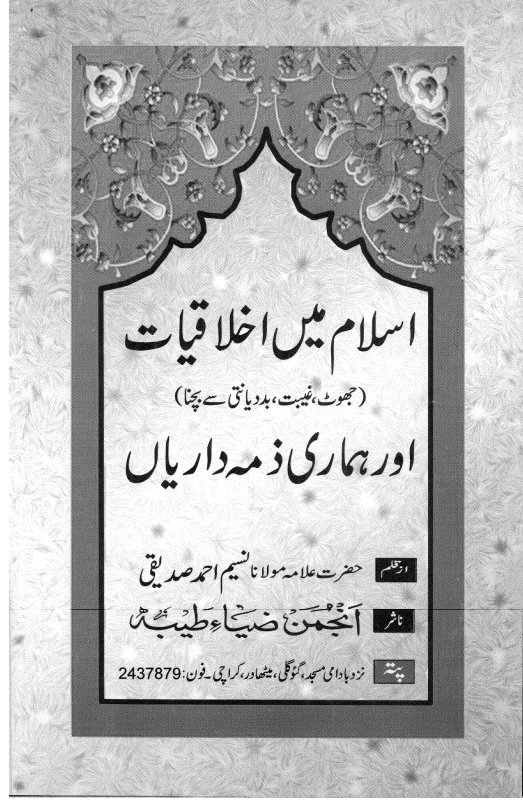 اسلام میں اخلاقیات
(جھوٹ، غیبت، بددیانتی سے بچنا)
اور ہماری ذمہ داریاں
از قلم حضرت علامہ مولانا نسیم احمد صدیقی
ناشر انجمن ضیاءِ طیبہ
پتہ نزد بادامی مسجد، گئو گلی، میٹھادر، کراچی۔ فون: 2437879